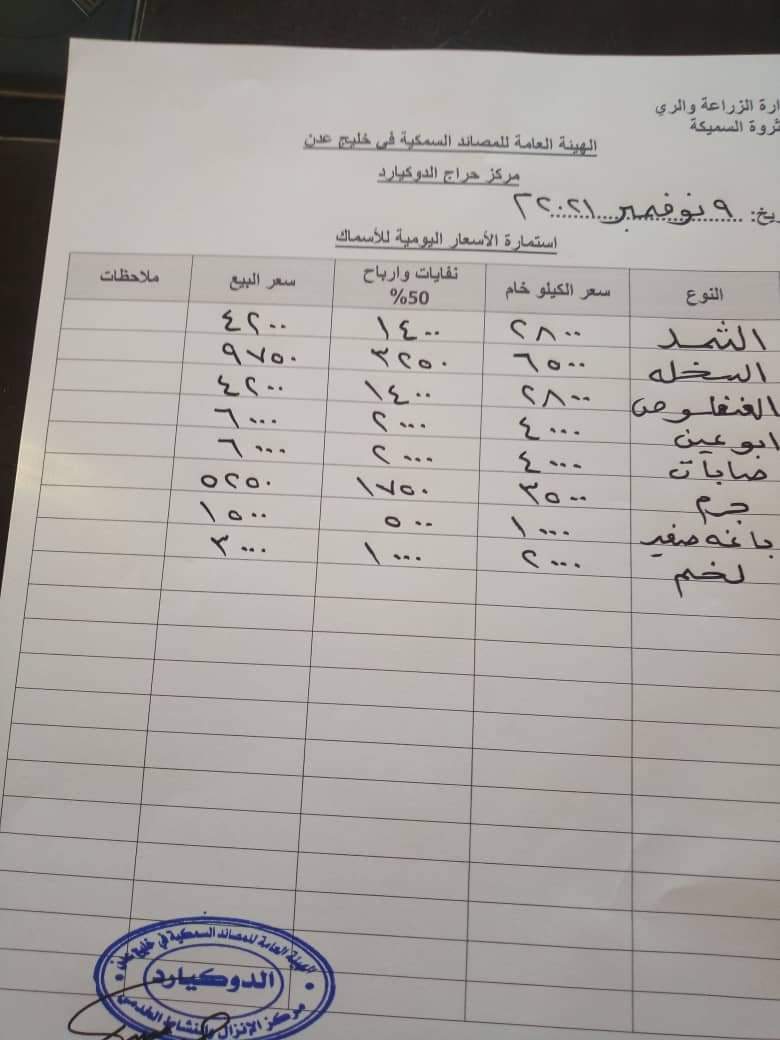 ارة الزراعة والري
ثروة السميكة
الهيئة العامة للمصائد السمكية في خليج عدن
مركز حراج الدوكيارد
يخ: ٩ نوفمبر ٢٠٢١ ٢
استمارة الأسعار اليومية للأسماك
النوع سعر الكيلو خام نفايات وارباح 50% سعر البيع ملاحظات
الثمد ٢٨٠٠ ١٤٠٠ ٤٢٠٠
السخله ٦٥٠٠ ٣٢٥٠ ٩٧٥٠
العنفلوص ٢٨٠٠ ١٤٠٠ ٤٢٠٠
ابو عين ٤٠٠٠ ٢٠٠٠ ٦٠٠٠
صابات ٤٠٠٠ ٢٠٠٠ ٦٠٠٠
جرم ٣٥٠٠ ١٧٥٠ ٥٢٥٠
باغه صغير ١٠٠٠ ٥٠٠ ١٥٠٠
لخم ٢٠٠٠ ١٠٠٠ ٣٠٠٠
الهيئة العامة للمصائد السمكية في خليج عدن
الدوكيارد
مركز الإنزال والنشاط الخدمي